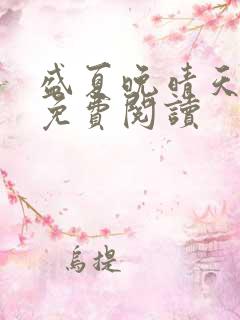 盛夏晚晴天
免費閱讀
烏提